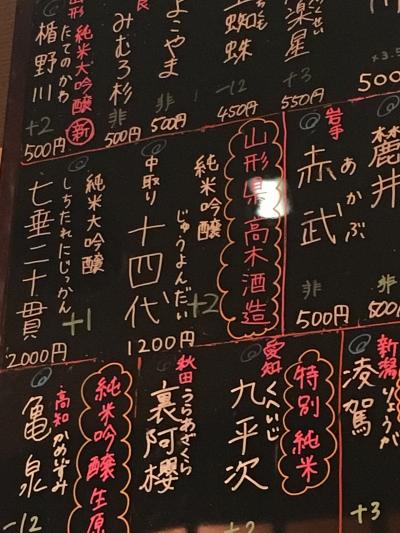 楽星
+3
550円
蜘蛛
-12
450円
よこやま
非
500円
みむろ杉
非
500円
山形 純米大吟醸 新
楯野川
たてのかわ
+2
500円
麓井
500円
岩手
赤武
あかぶ
非
500円
山形県 高木酒造
純米吟醸
じゅうよんだい
中取り 十四代
+2
1200円
純米大吟醸
しちたれにじっかん
七垂二十貫
+1
2000円
新潟
りょうが
凌駕
+3
特別純米
愛知
くへいじ
九平次
+2
秋田
うらあざくら
裏阿櫻
純米吟醸生原
高知
かめいずみ
亀泉
-12